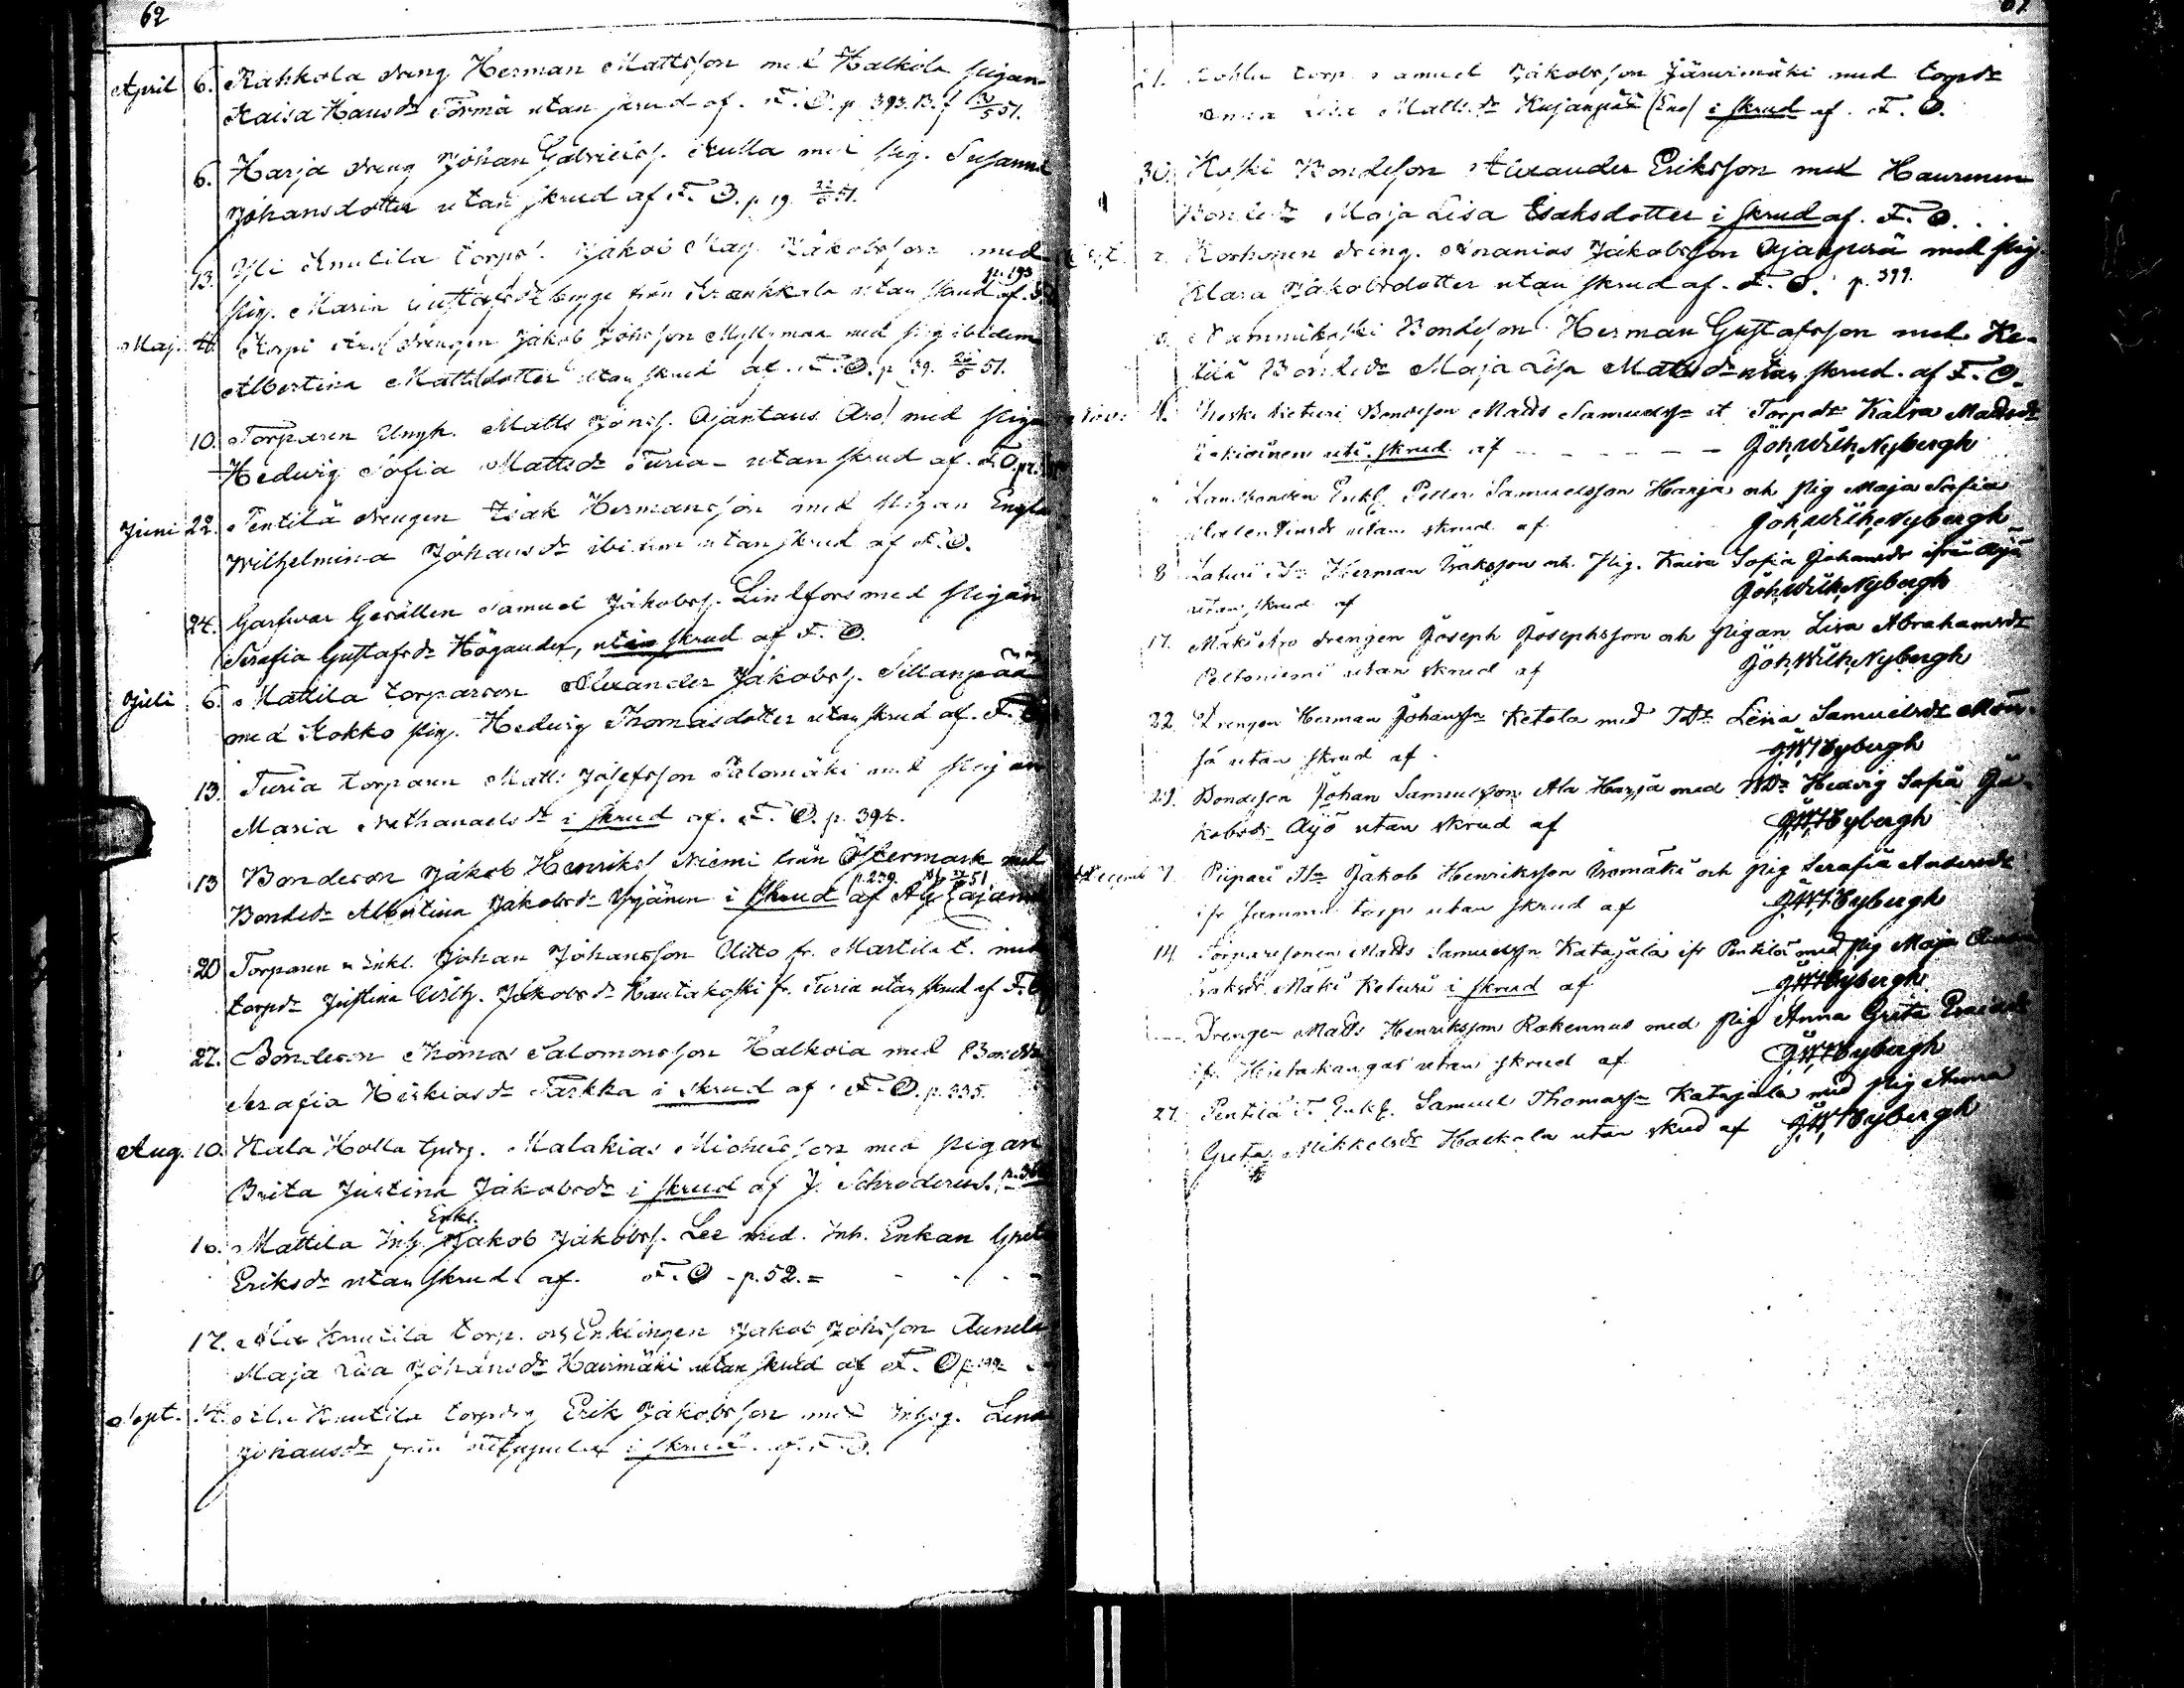 62
April 6. Rahkola dreng Herman Mattsson med Halkola pigan
Kaisa Hansdr Törmä utan skrud af F. O. p. 393. B. f 51.
6. Harja dreng Johan Gabrielss. Kulla med pig. Susanna
Johansdotter utan skrud af F. O. p 19. 51.
13. Yli Knutila torp. Jakob Jakobsson med
pig. Maria Gustafsdr från utan skrud af p. 193
Maj 4. Korpi drengen Jakob Johsson Myllymaa med pig ibidem
Albertina Mattsdotter utan skrud af F. O. p 39. 51.
10. Torparen Ungk. Matts Jönss. Ajantaus Aro med pigan
Hedwig Sofia Mattsdr Turia utan skrud af F. O.
Juni 22. Pentilä drengen Isak Hermansson med pigan Engla
Wilhelmina Johansdr ibidem utan skrud af F. O.
24. Garfwar Gesällen Samuel Jakobss. Lindfors med pigan
Serafia Gustafsdr Högander, utan skrud af F. O.
Juli 6. Mattila torparson Alexander Jakobss. Sillanpää
med Kokko pig. Hedwig Thomasdotter utan skrud af F. O.
13. Turia torparen Matts Josefsson Salomäki med pigan
Maria Nathanaelsdr i skrud af F. O. p. 394.
13 Bondeson Jakob Henriks Niemi från Östermark med
Bondedr Albertina Jakobsdr Yrjänen i skrud af p. 239. 51
20 Torparen Enkl. Johan Johansson Uitto fr. Martila t. med
torpdr Justina Wilh. Jakobsdr Hautakoski fr. Turia utan skrud af F. O
27. Bondeson Thomas Salomonsson Halkola med Bondedr
Serafia Heskiasdr Tarkka i skrud af F. O. p. 335.
Aug. 10. Kala Holla Malakias Michelsson med pigan
Brita Justina Jakobsdr i skrud af J. Schroderus.
10. Mattila Inh. Enkl. Jakob Jakobss. Lee med Inh. Enkan Greta
Eriksdr utan skrud af F. O - p. 52. =
17. Ala Knutila torp. och Enklingen Jakob Johsson Aunela
Maja Lisa Johansdr Harimäki utan skrud af F. O p.
Sept. 14. Ala Knutila torpdrg Erik Jakobsson med Inhpg. Lena
Johansdr från i skrud af F. O.
21. torp. Samuel Jakobsson Järwimäki med torpdr
Anna Lisa Mattsdr Kujanpää (Eno) i skrud af F. O.
30. Koski Bondeson Alexander Eriksson med Haurunen
Bondedr Maja Lisa Isaksdotter i skrud af F. O.
Korhonen dreng. Ananias Jakobsson Ojanperä med pig
Klara Jakobsdotter utan skrud af F. O. p. 399.
Nammikoski Bondeson Herman Gustafsson med Ke-
Bondedr Maja Lisa Mattsdr utan skrud af F. O.
Nov. 4. Keturi Bondeson Matts Samuelssn et Torpdr Kaisa Mattsdr
uti skrud af Joh. Wilh. Nybergh
Landbonden Enkl. Petter Samuelsson Harja och pig Maja Serfia
Walentinsdr utan skrud af Joh. Wilh. Nybergh
8 Laturi Herman Isaksson och Pig. Kaisa Sofia Johansdr ifrån Äijö
utan skrud af Joh. Wilh. Nybergh
17. Mäki Aro drengen Joseph Josephsson och pigan Lisa Abrahamsdr
Peltoniemi utan skrud af Joh. Wilh. Nybergh
22. Drengen Herman Johanssn Ketola med Tdr Lena Samuelsdr
utan skrud af J. W. Nybergh
29. Bondeson Johan Samuelsson Ala Harja med Hedvig Sofia Ja-
kobsdr Äijö utan skrud af J. W. Nybergh
Decemb 7. Piipari Jakob Henriksson Isomäki och pig Serafia Andersdr
ifr samma torp utan skrud af J. W. Nybergh
14. Torparesonen Matts Samuelssn Katajala ifr Pentilä med pig Maja
Isaksdr Mäki Keturi i skrud af J. W. Nybergh
Drengen Matts Henriksson Rakennus med pig Anna Greta
ifr Hietakangas utan skrud af J. W. Nybergh
27. Pentilä T. Enkl. Samuel Thomassn Katajala med pig Anna
Greta Mikkelsdr Harkola utan skrud af J. W. Nybergh